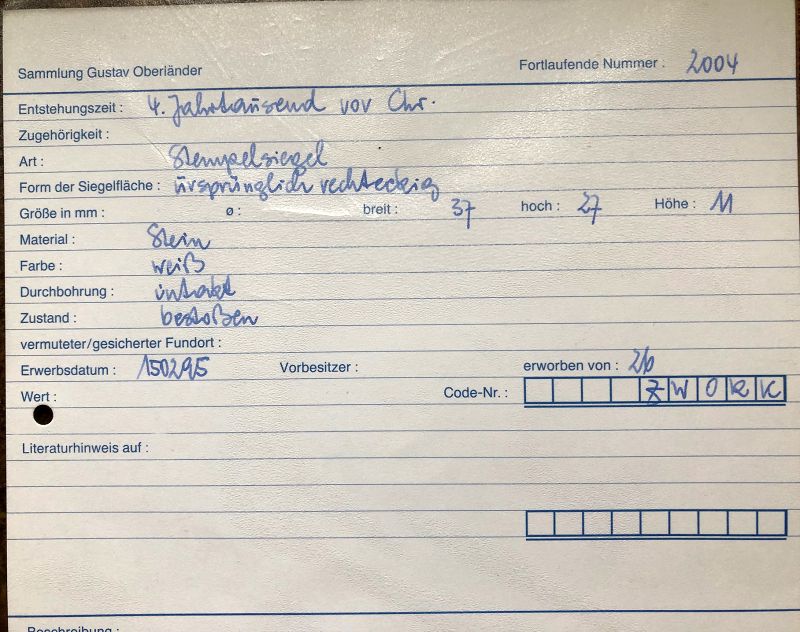 Sammlung Gustav Oberländer Fortlaufende Nummer : 2004
Entstehungszeit : 4. Jahrtausend vor Chr.
Zugehörigkeit :
Art : Stempelsiegel
Form der Siegelfläche : ursprünglich rechteckig
Größe in mm : ø : breit : 37 hoch : 27 Höhe : 11
Material : Stein
Farbe : weiß
Durchbohrung : intakt
Zustand : bestoßen
vermuteter/gesicherter Fundort :
Erwerbsdatum : 150295 Vorbesitzer : erworben von :
Wert : Code-Nr. : ZWORK
Literaturhinweis auf :
Beschreibung :